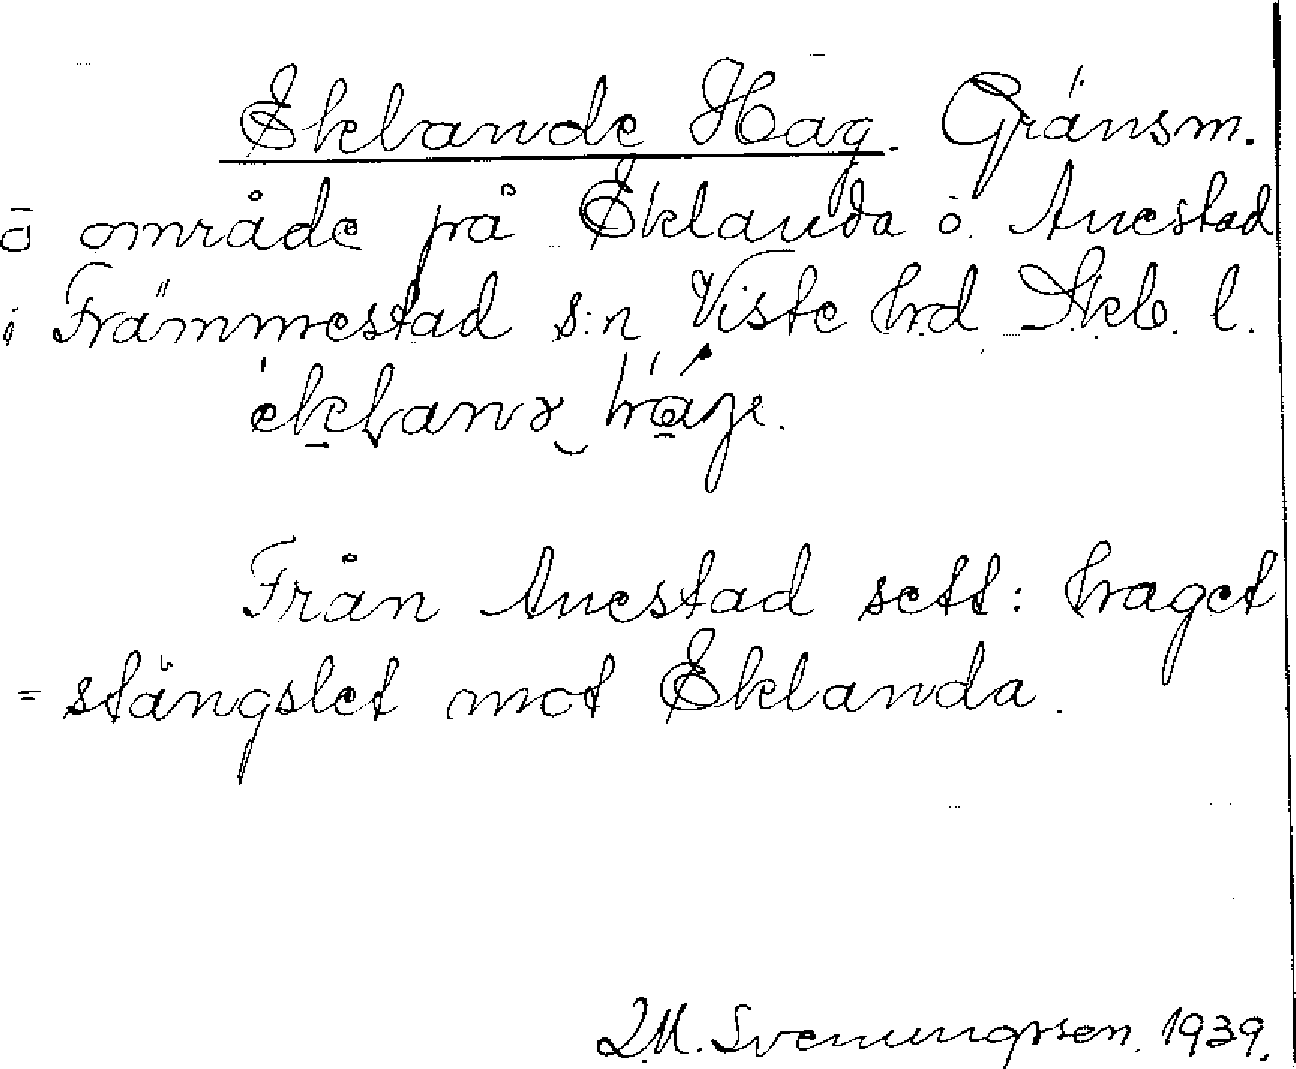 Eklande Hag. Gränsm.
ō område på Eklanda o. Anestad
i Främmestad s:n Viste hrd Skb. l.
Från Anestad sett: haget
= stängslet mot Eklanda.
Svenungsson. 1939.